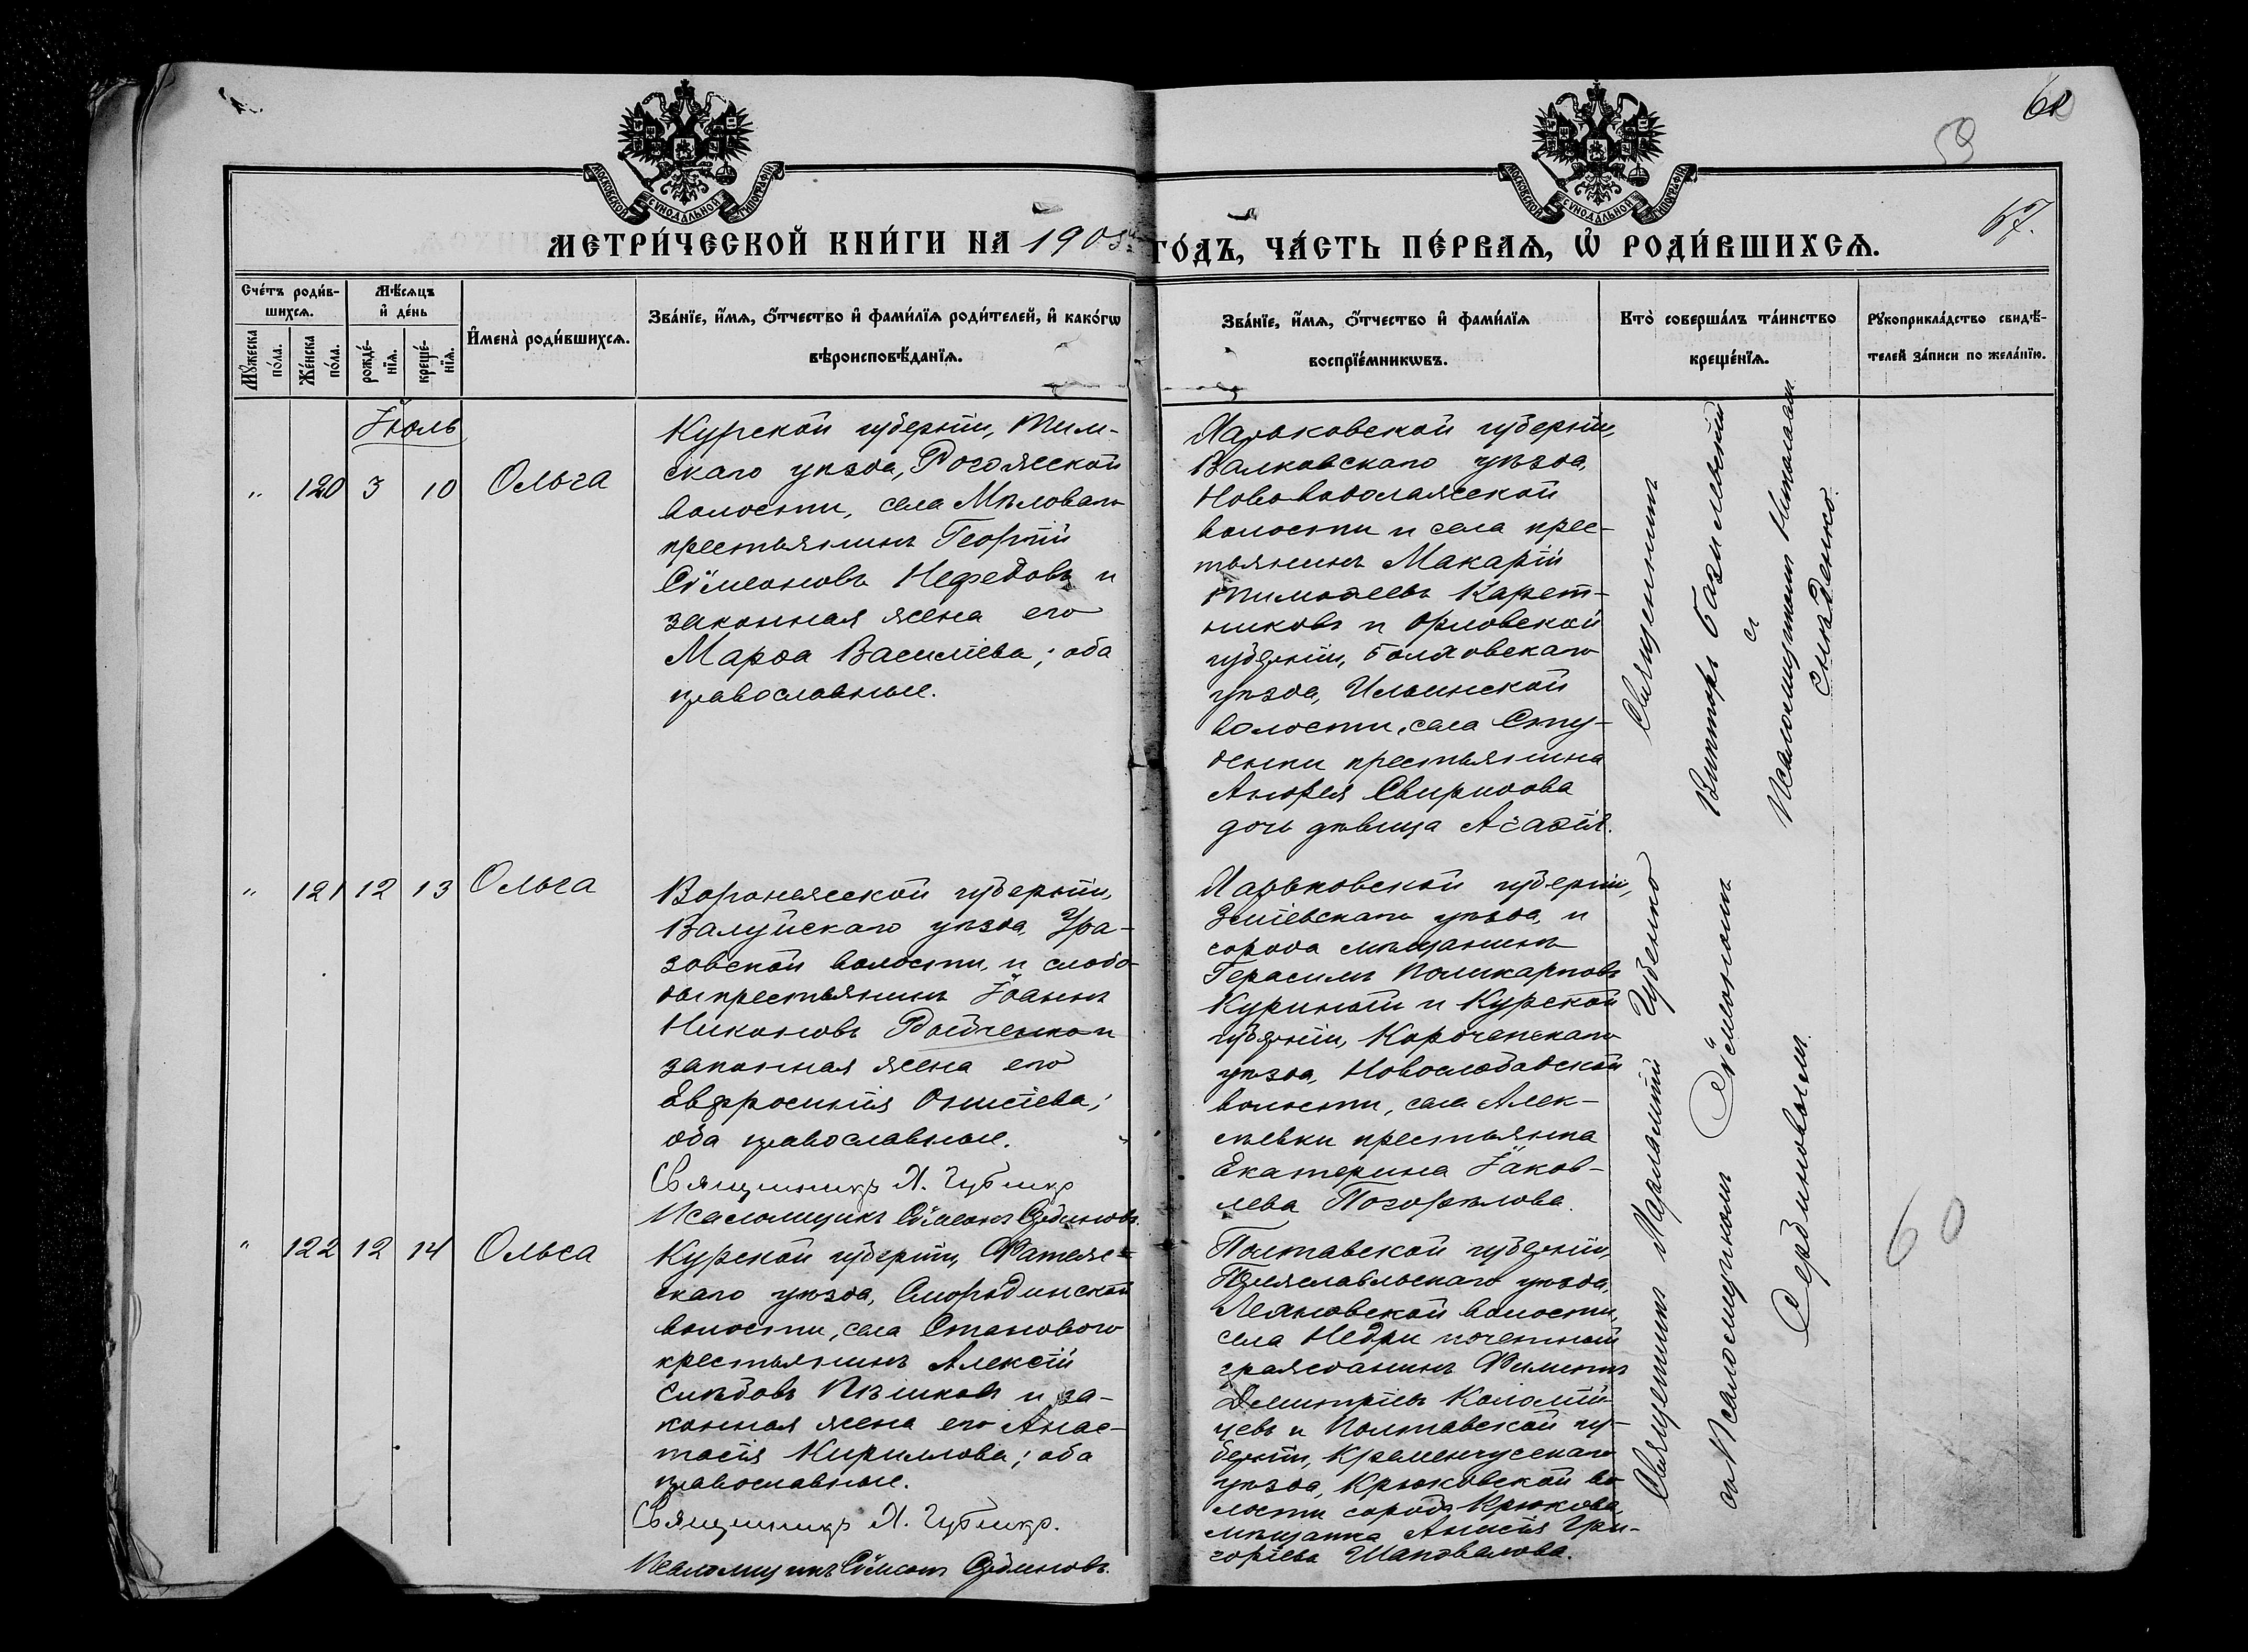 60
59
57.
МОСКОВСКОЙ СѴНОДАЛЬНОЙ ТИПОГРАФІИ
МОСКОВСКОЙ СѴНОДАЛЬНОЙ ТИПОГРАФІИ
МЕТРИ́ЧЕСКОЙ КНИ́ГИ НА 1905 ГО́ДЪ, ЧА́СТЬ ПЕ́РВАѦ, Ѽ РОДИ́ВШИХСѦ.
Сче́тъ роди́в-
шихсѧ.
Мꙋ́жеска
по́ла.
Же́нска
по́ла.
Мѣ́сѧцъ
и҆ де́нь
рожде́-
нїѧ.
креще́-
нїѧ.
И҆мена̀ роди́вшихсѧ.
Зва́нїе, и҆́мѧ, ѻ҆́тчество и҆ фами́лїѧ роди́телей, и҆ како́гѡ
вѣроисповѣ́данїѧ.
Зва́нїе, и҆́мѧ, ѻ҆́тчество и҆ фами́лїѧ
воспрїе́мникѡвъ.
Кто̀ соверша́лъ та́инство
креще́нїѧ.
Рꙋкоприкла́дство свидѣ́-
телей за́писи по жела́нїю.
Іюль
" 120 3 10 Ольга
Курской губерніи, Тим-
скаго уѣзда, Рогожеской
волости, села Мѣловаго
крестьянинъ Георгій
Сѵмеоновъ Нефедовъ и
законная жена его
Марѳа Василіева; оба
православные.
Харьковской губерніи,
Валковскаго уѣзда,
Нововодолажской
волости и села крес-
тьянинъ Макарій
Тимоѳеевъ Карет-
никовъ и Орловской
губерніи, Болховскаго
уѣзда, Ильинской
волости, села Сту-
денки крестьянина
Андрея Свиридова
дочь дѣвица Агаѳія.
Священникъ
Викторъ Базилевскій
съ
Псаломщикомъ Николаемъ
Снѣзденко.
" 121 12 13 Ольга
Воронежской губерніи,
Валуйскаго уѣзда, Ура-
зовской волости, и слобо-
ды крестьянинъ Іоаннъ
Никоновъ Войченко и
законная жена его
Евфросинія Онисіева;
оба православные.
Священникъ Х. Губенко
Псаломщикъ Сѵмеонъ Сердиновъ.
Харьковской губерніи,
Зміевскаго уѣзда, и
города мѣщанинъ
Герасимъ Поликарповъ
Куриный и Курской
губерніи, Корочанскаго
уѣзда, Новослободской
волости, села Алек-
сѣевки крестьянка
Екатерина Іаков-
лева Погорѣлова.
" 122 12 14 Ольга
Курской губерніи, Фатеж-
скаго уѣзда, Смородинской
волости, села Становаго
крестьянинъ Алексій
Глѣбовъ Пѣшковъ и за-
конная жена его Анас-
тасія Кириллова; оба
православные.
Священникъ Х. Губенко.
Псаломщикъ Сѵмеонъ Сердиновъ.
Полтавской губерніи,
Переяславльскаго уѣзда,
волости,
села Недри почетный
гражданинъ Филиппъ
Димитріевъ Коломій-
цевъ и Полтавской гу-
берніи, Кременчугскаго
уѣзда, Крюковской во-
лости города Крюкова
мѣщанка Анисія Гри-
горіева Шаповалова.
Священникъ Харлампій Губенко
съ Псаломщикомъ Сѵмеономъ
Сердиновымъ.
60